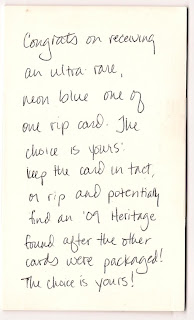 Congrats on receiving
an ultra rare,
neon blue one of
one rip card. The
choice is yours:
keep the card in tact,
or rip and potentially
find an '09 Heritage
found after the other
cards were packaged!
The choice is yours!